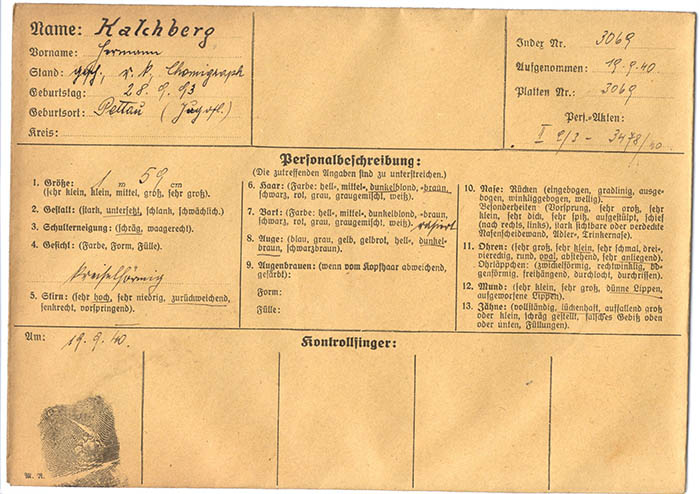 Name: Kalchberg
Vorname: Hermann
Stand: gesch., r. k.,
Geburtstag: 28. 9. 93
Geburtsort: Pettau (Jugosl.)
Kreis:
Index Nr. 3069
Aufgenommen: 19. 9. 40.
Platten Nr.: 3069
Pers.-Akten:
II 9/3 - 3478/40
Personalbeschreibung:
(Die zutreffenden Angaben sind zu unterstreichen.)
1. Größe: 1 m 59 cm
(sehr klein, klein, mittel, groß, sehr groß).
2. Gestalt: (stark, untersetzt, schlank, schwächlich.)
3. Schulterneigung: (schräg, waagerecht).
4. Gesicht: (Farbe, Form, Fülle).
kreiselförmig
5. Stirn: (sehr hoch, sehr niedrig, zurückweichend,
senkrecht, vorspringend).
6. Haar: (Farbe: hell-, mittel-, dunkelblond, -braun,
schwarz, rot, grau, graugemischt, weiß).
7. Bart: (Farbe: hell-, mittel-, dunkelblond, -braun,
schwarz, rot, grau, graugemischt, weiß). rasiert
8. Auge: (blau, grau, gelb, gelbrot, hell-, dunkel-
braun, schwarzbraun).
9. Augenbrauen: (wenn vom Kopfhaar abweichend,
gefärbt):
Form:
Fülle:
10. Nase: Rücken (eingebogen, gradlinig, ausge-
bogen, winkliggebogen, wellig).
Besonderheiten (Vorsprung, sehr groß, sehr
klein, sehr dick, sehr spitz, aufgestülpt, schief
(nach rechts, links), stark sichtbare oder verdeckte
Nasenscheidewand, Adler-, Trinkernase).
11. Ohren: (sehr groß, sehr klein, sehr schmal, drei-,
viereckig, rund, oval, abstehend, sehr anliegend).
Ohrläppchen: (zwickelförmig, rechtwinklig, bo-
genförmig, freihängend, durchlocht, durchrissen).
12. Mund: (sehr klein, sehr groß, dünne Lippen,
aufgeworfene Lippen).
13. Zähne: (vollständig, lückenhaft, auffallend groß
oder klein, schräg gestellt, falsches Gebiß oben
oder unten, Füllungen).
Am: 19. 9. 40.
Kontrollfinger: